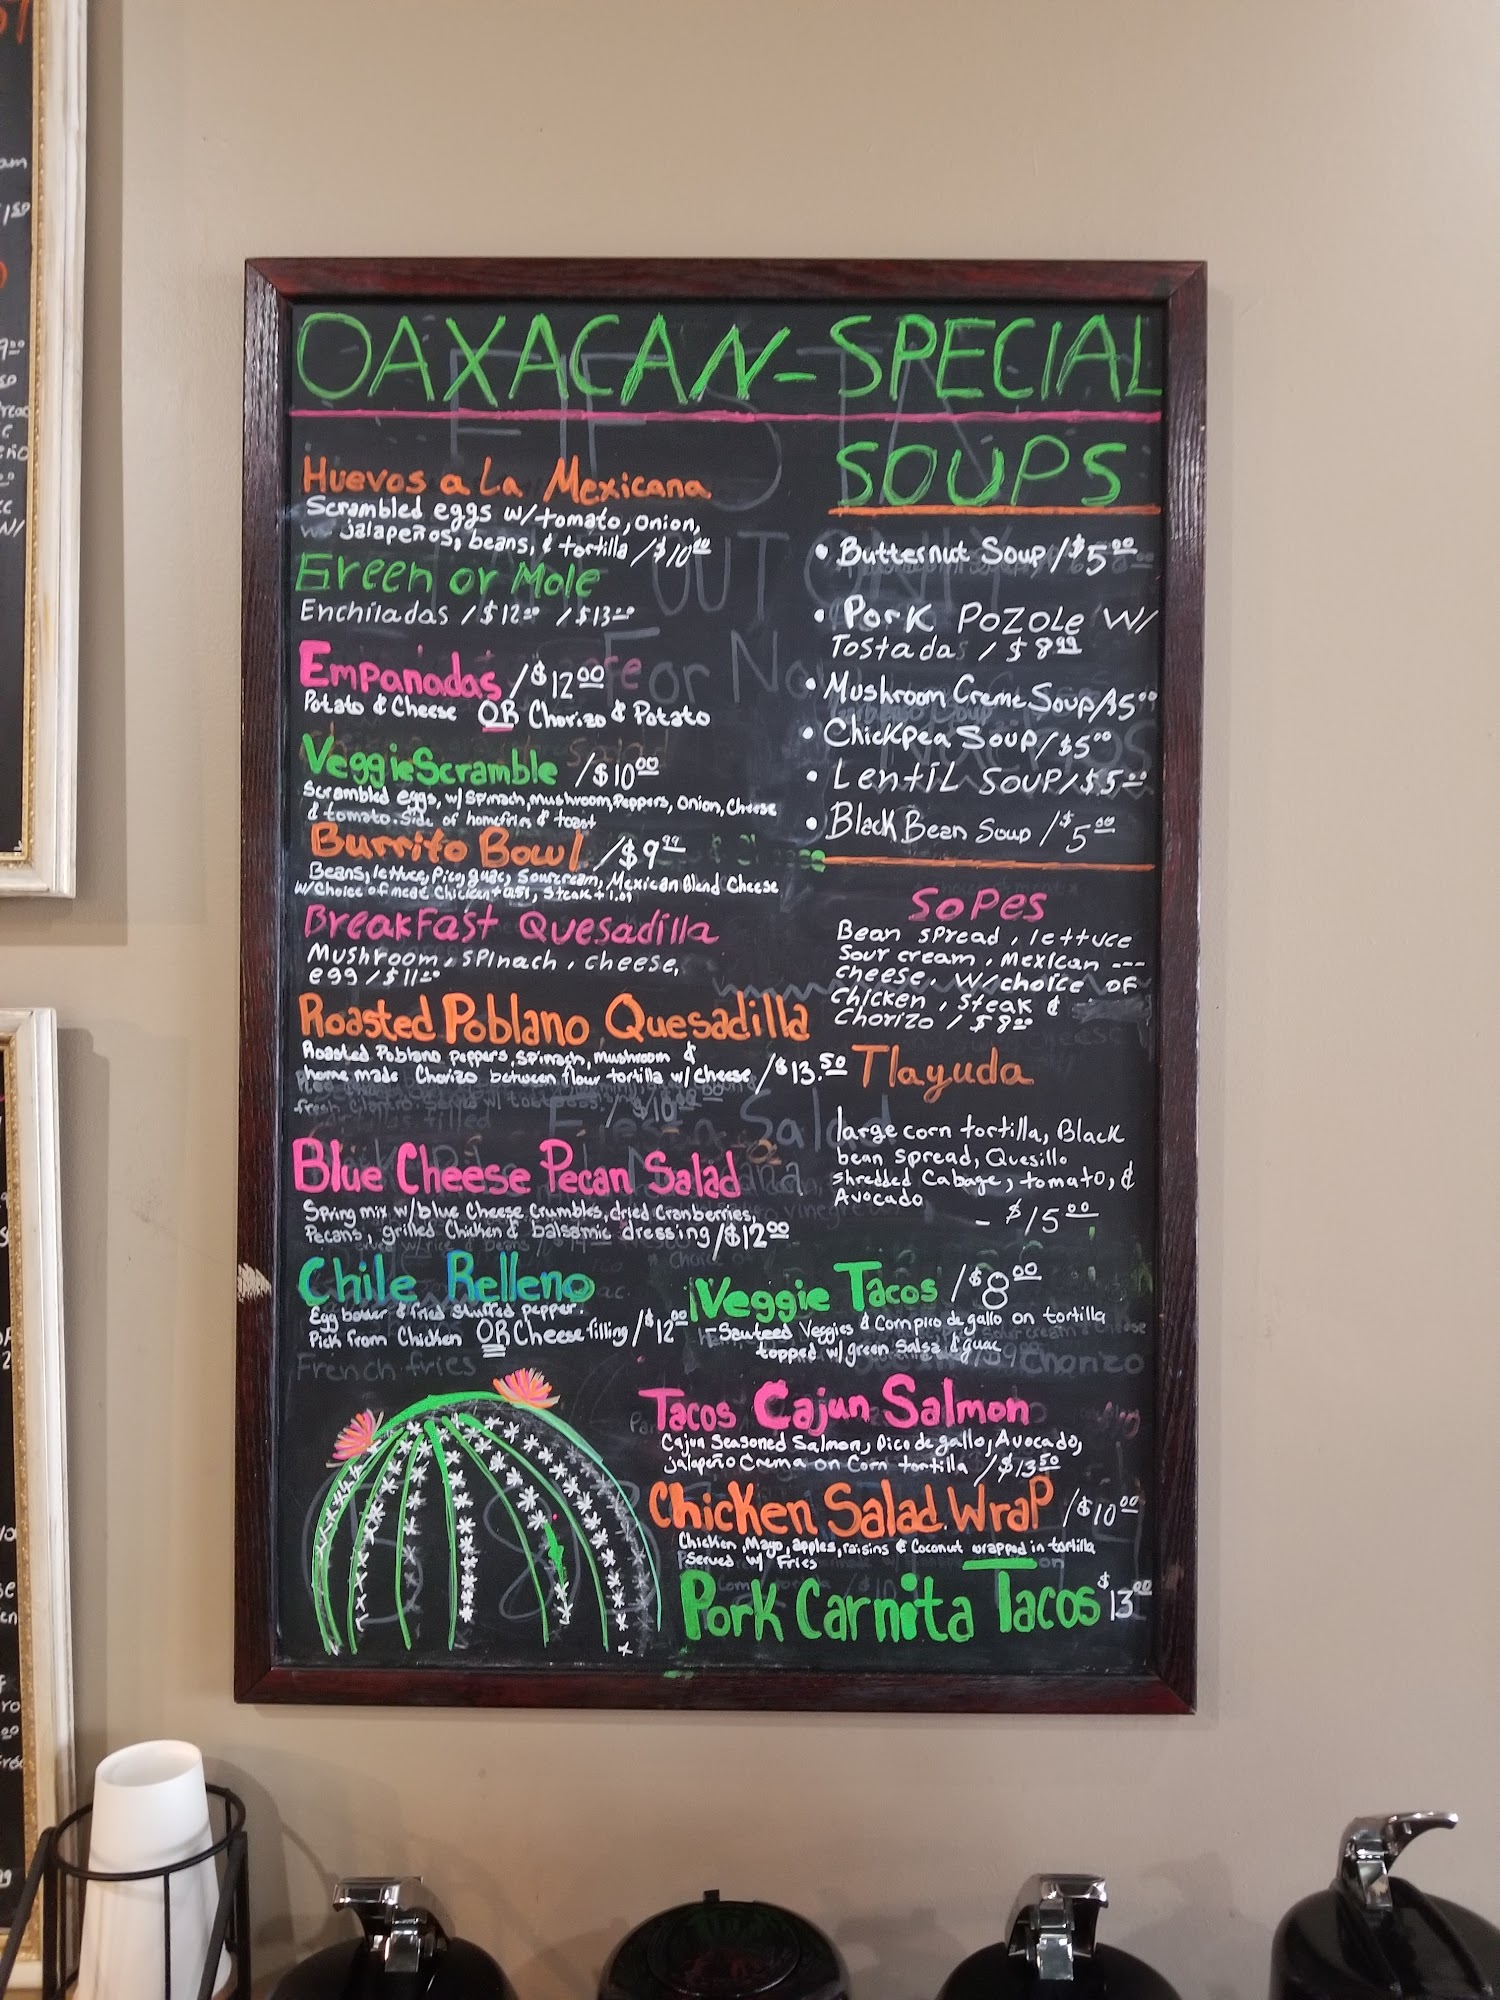 OAXACAN-SPECIAL
Huevos a La Mexicana
Scrambled eggs w/tomato, onion,
jalapeños, beans, & tortilla /$10.00
Green or Mole
Enchiladas /$12.00 /$13.00
Empanadas /$12.00
Potato & Cheese OR Chorizo & Potato
VeggieScramble /$10.00
Scrambled eggs, w/ Spinach, mushroom, Peppers, onion, Cheese
& tomato. Side of homefries & toast
Burrito Bowl /$9.99
Beans, lettuce, Pico, guac, Sourcream, Mexican Blend Cheese
w/Choice of meat Chicken + 0.51, Steak + 1.01
Breakfast Quesadilla
Mushroom, spinach, cheese,
egg /$11.00
Roasted Poblano Quesadilla
Roasted Poblano peppers, spinach, mushroom &
home made Chorizo between flour tortilla w/ cheese /$13.50
Blue Cheese Pecan Salad
Spring mix w/blue Cheese Crumbles, dried Cranberries,
Pecans, grilled Chicken & balsamic dressing /$12.00
Chile Relleno
Egg batter & fried Stuffed pepper.
Pick from Chicken OR Cheese filling /$12.00
SOUPS
• Butternut Soup /$5.00
• Pork Pozole W/
Tostadas /$8.99
• Mushroom Creme Soup/$5.00
• Chickpea Soup/$5.00
• Lentil Soup/$5.00
• Black Bean Soup /$5.00
Sopes
Bean spread, lettuce
Sour cream, Mexican ---
cheese. W/choice of
Chicken, Steak &
Chorizo /$8.00
Tlayuda
large corn tortilla, Black
bean spread, Quesillo
shredded Cabage, tomato, &
Avocado
- $15.00
Veggie Tacos /$8.00
Sauteed Veggies & Corn pico de gallo on tortilla
topped w/ green Salsa & guac
Tacos Cajun Salmon
Cajun Seasoned Salmon, Pico de gallo, Avocado,
jalapeño Crema on Corn tortilla /$13.50
Chicken Salad Wrap /$10.00
Chicken, Mayo, apples, raisins & Coconut wrapped in tortilla
Served w/ Fries
Pork Carnita Tacos $13.00
French fries